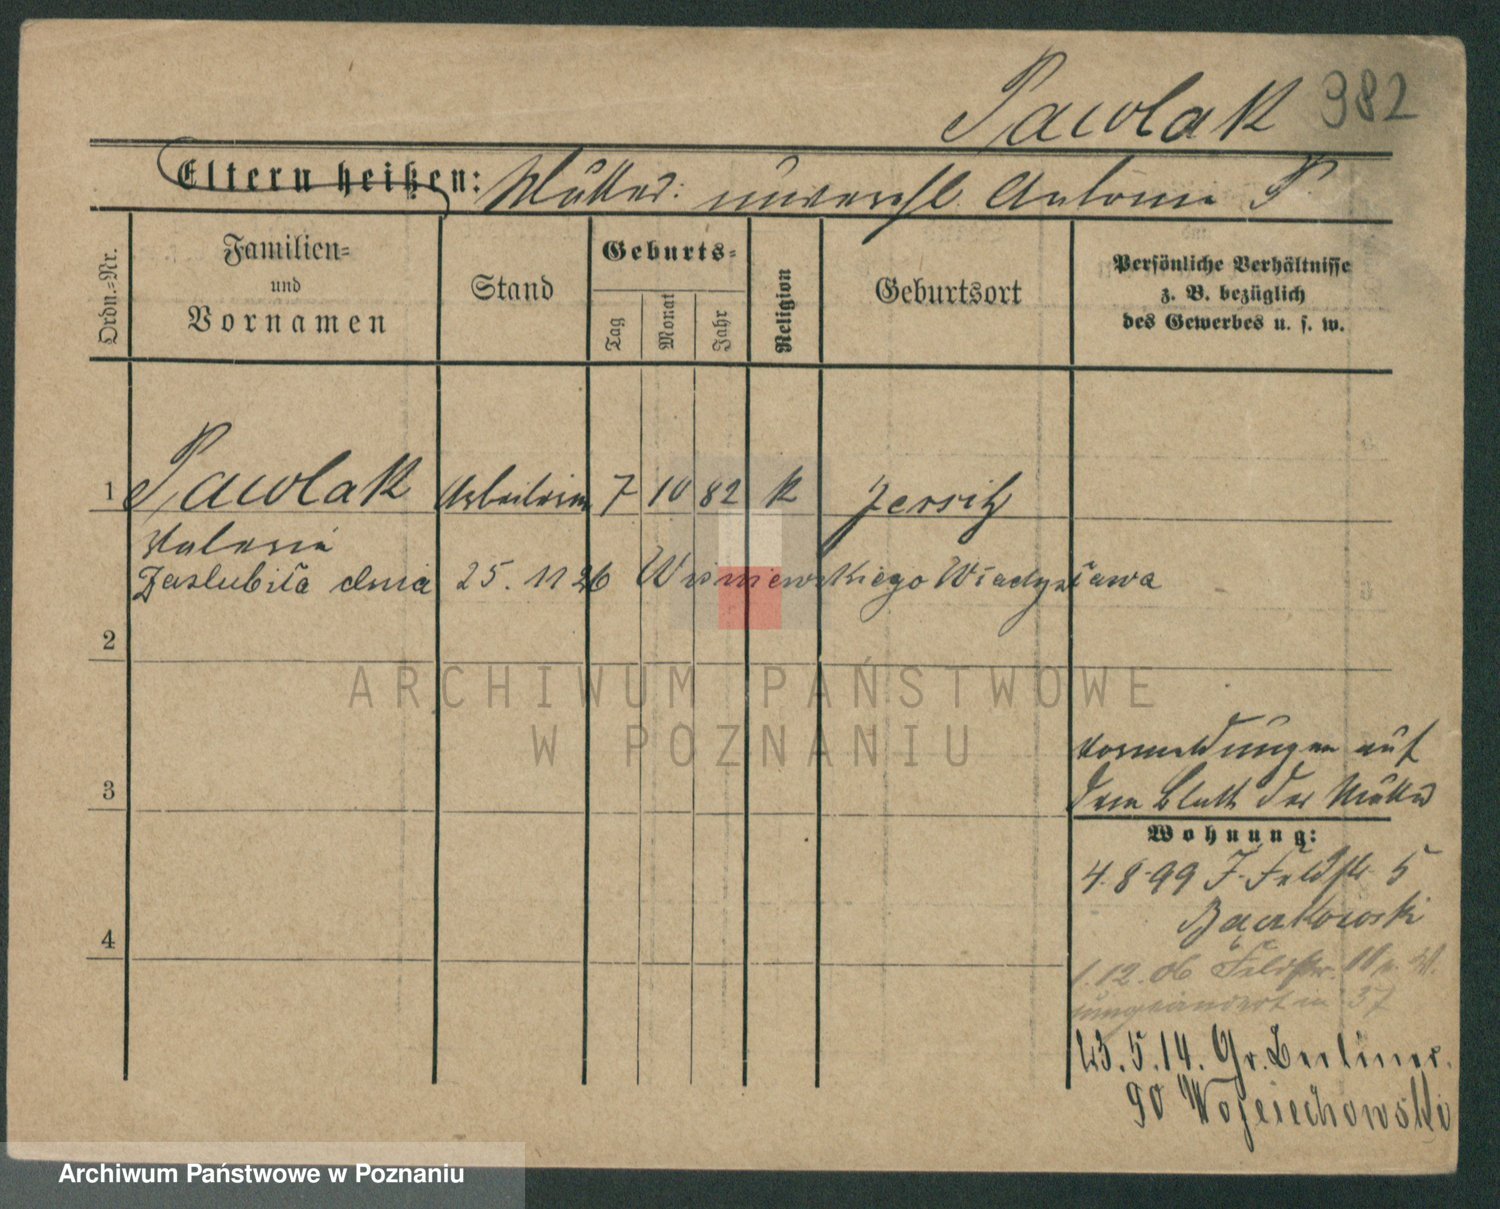 Pawlak 382
Eltern heißen: Mutter: unverehl. Antonie P.
Ordn.=Nr.
Familien=
und
Vornamen
Stand
Geburts=
Tag
Monat
Jahr
Religion
Geburtsort
Persönliche Verhältnisse
z. B. bezüglich
des Gewerbes u. s. w.
1 Pawlak Arbeiterin 7 10 82 k Jersitz
Valeria
Zaslubiła dnia 25. 11 26 Wisniewskiego Władysława
2
ARCHIWUM PAŃSTWOWE
W POZNANIU
3
Vormeldungen auf
dem Blatt der Mutter
Wohnung:
4.8.99 J. Feldstr. 5
4
1.12.06 Feldstr.
umgeändert in 37
23.5.14. Gr. Berliner.
90 Wojciechowski
Archiwum Państwowe w Poznaniu